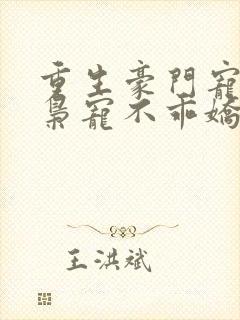 重生豪門寵
梟寵不乖嬌
王洪斌